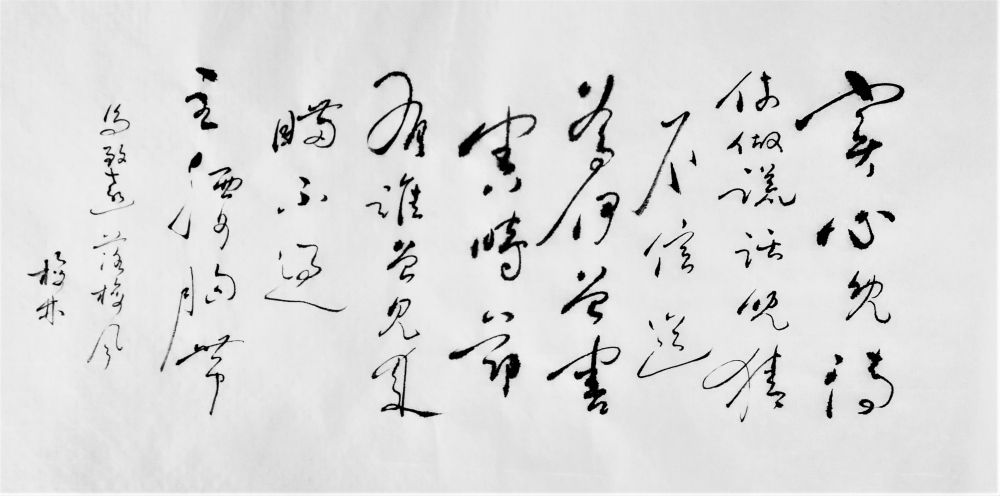 實心兒待
休做謊話兒猜
不信道
為伊曾害
害時節
有誰曾見來
瞞不過
主腰胸帶
馬致遠 落梅風